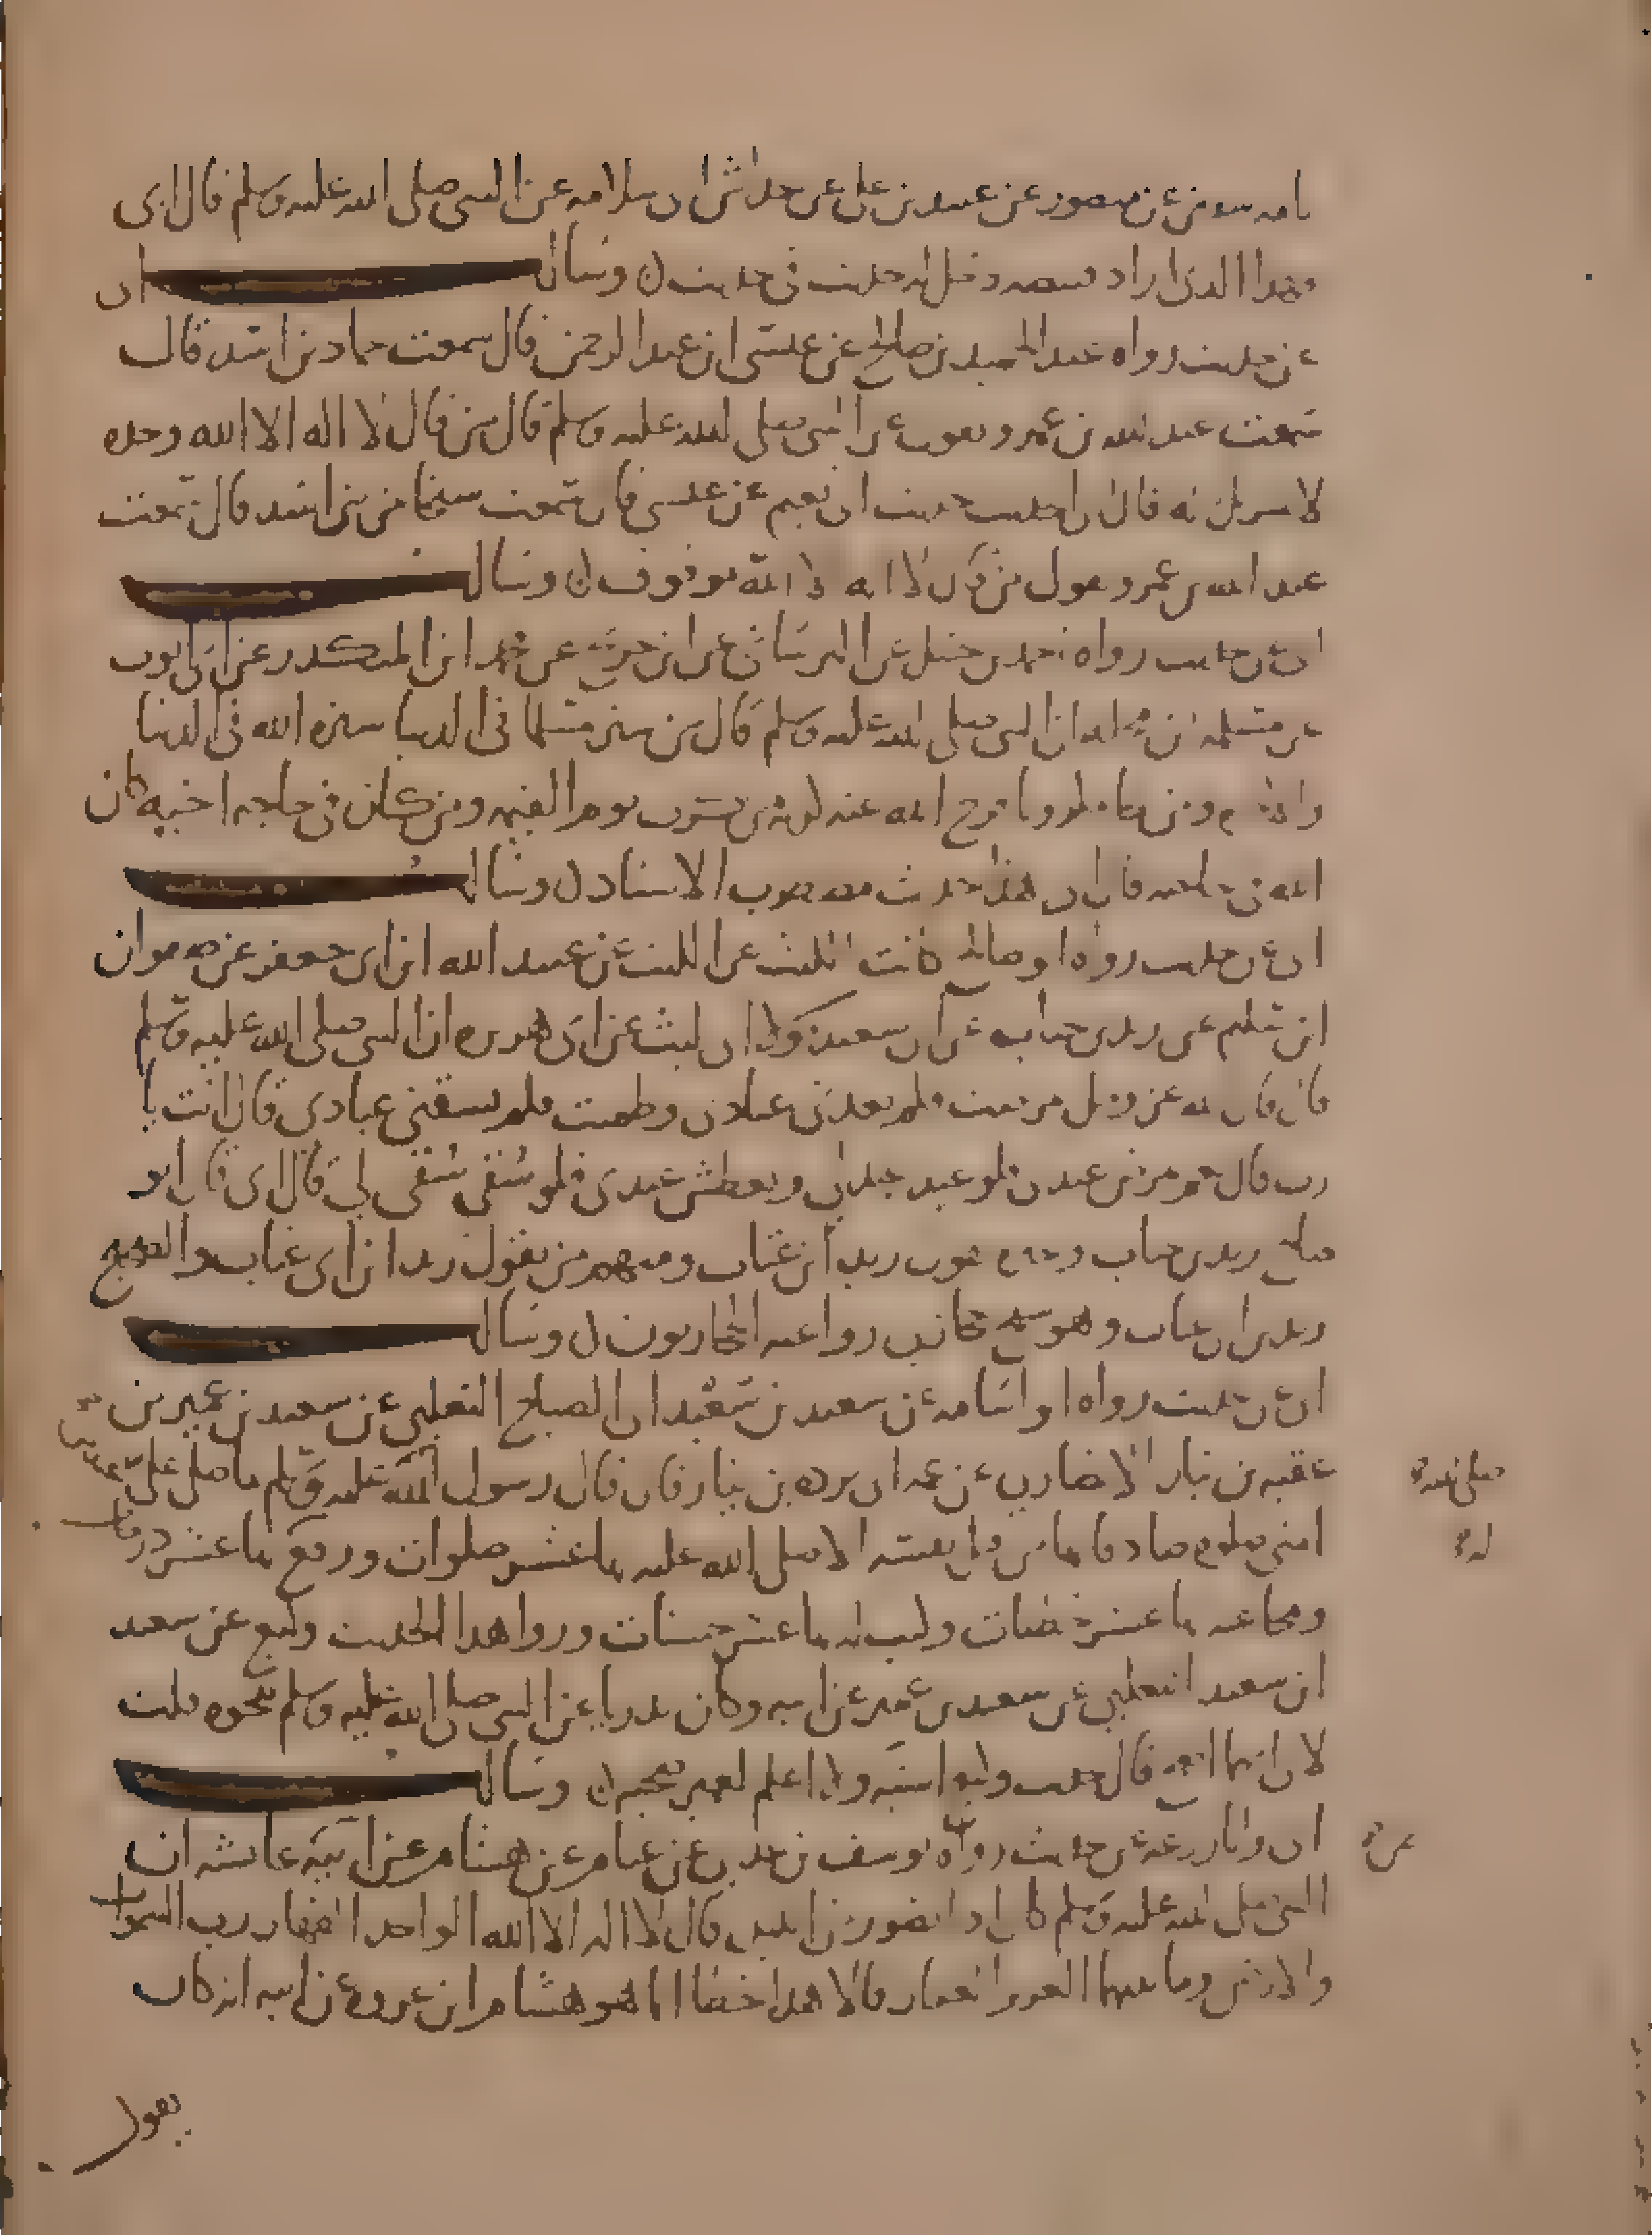 سفين عن منصور عن عبيد بن علي عن خداش ابى سلامه عن النبي صلى الله عليه وسلم قال ابى
وهذا الذى اراد دخل له حديث في حديث ن وسالت ابى
عن حديث رواه عبد الحميد بن صالح عن عيسى ابن عبد الرحمن قال سمعت حماد بن اسد قال
سمعت عبد الله بن عمرو يقول عن النبي صلى الله عليه وسلم قال من قال لا اله الا الله وحده
لا شريك له قال ابى حديث ابى نعيم عن عيسى قال سمعت قال سمعت
عبد الله بن عمرو يقول من قال لا اله الا الله موقوف ن وسالت
ابى عن حديث رواه احمد بن حنبل عن البرساني عن ابن جريج عن محمد ابن المنكدر عن ابى ايوب
عن مسلمه بن مخلد ان النبي صلى الله عليه وسلم قال من ستر مسلما في الدنيا ستره الله في الدنيا
والاخره ومن فرج الله عنه كربه من كرب يوم القيمه ومن كان في حاجه اخيه كان
الله في حاجته قال ابى هذا حديث مضطرب الاسناد ن وسالت
ابى عن حديث رواه ابو صالح كاتب الليث عن الليث عن عبيد الله ابن ابى جعفر عن صفوان
ابن سليم عن زيد بن عن ابى سعيد ولا ابى ليث عن ابى هريره ان النبي صلى الله عليه وسلم
قال قال الله عز وجل مرضت فلم يعدنى عبادى وظمئت فلم يسقني عبادى قال انت يا
رب قال نعم يمرض عبدى فلو عيد عيد لى ويعطش عبدى فلو سُقى سُقى لي قال ابى قال ابو
صالح زيد بن ومنهم يقول زيد ابن عتاب ومنهم من يقول زيد ابن ابى عتاب والصحيح
زيد ابن ابى عتاب وهو شيخ روا عنه الحجازيون ن وسالت
ابى عن حديث رواه ابو اسامه عن سعيد بن سعيد ابى الصباح التغلبي عن سعيد بن عمير بن
عقبه بن نيار الانصارى عن عمه ابى برده بن نيار قال قال رسول الله عليه وسلم ما صلى علي عبد من
صلى الله
امتي صلوه صادقا بها من قبل نفسه الا صلى الله عليه بها عشر صلوات ورفع بها عشر درجات
له
ومحا عنه بها عشر خطيات وكتب له بها عشر حسنات وروا هذا الحديث وكيع عن سعيد
ابن سعيد التغلبي عن سعيد بن عمير عن ابيه وكان بدريا عن النبي صلى الله عليه وسلم نحوه قلت
لابى ايهما اصح قال حديث وكيع اشبه ولا اعلم لعمير صحبه ن وسالت
ابى وابا زرعه عن حديث رواه يوسف بن عدى عن عثام عن هشام عن ابيه عائشه ان
عن
النبي صلى الله عليه وسلم كان اذا تضور من الليل قال لا اله الا الله الواحد القهار رب السموات
والارض وما بينهما العزيز الغفار قالا هذا خطا انما هو هشام ابن عروه عن ابيه انه كان
يقول